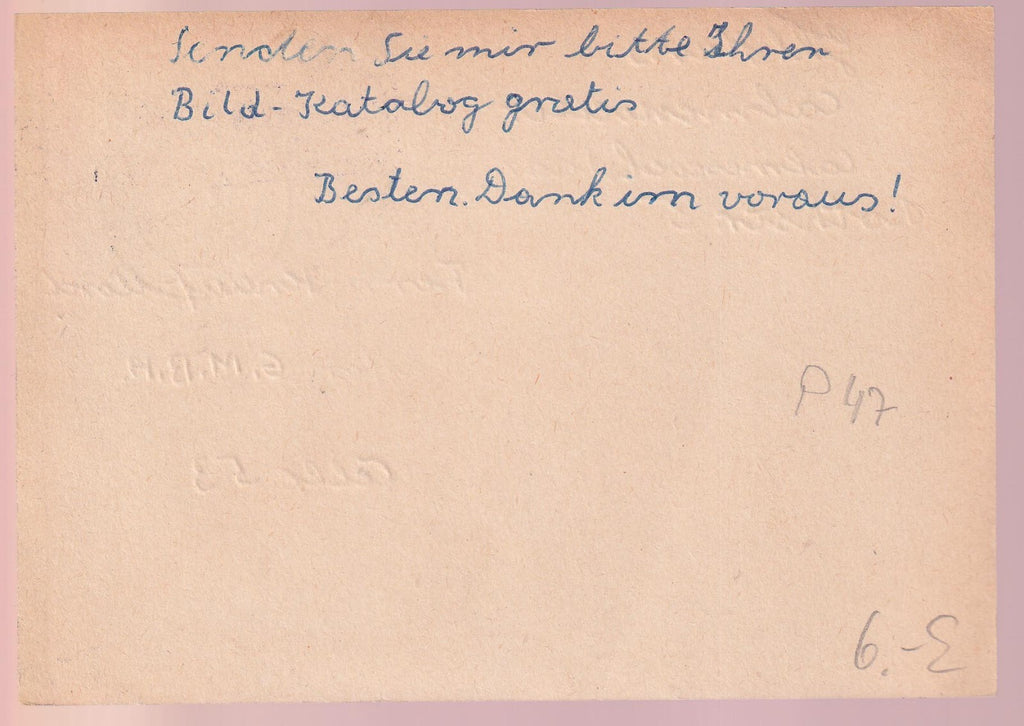 Senden Sie mir bitte Ihren
Bild-Katalog gratis
Besten Dank im voraus!
P 47
6.-E